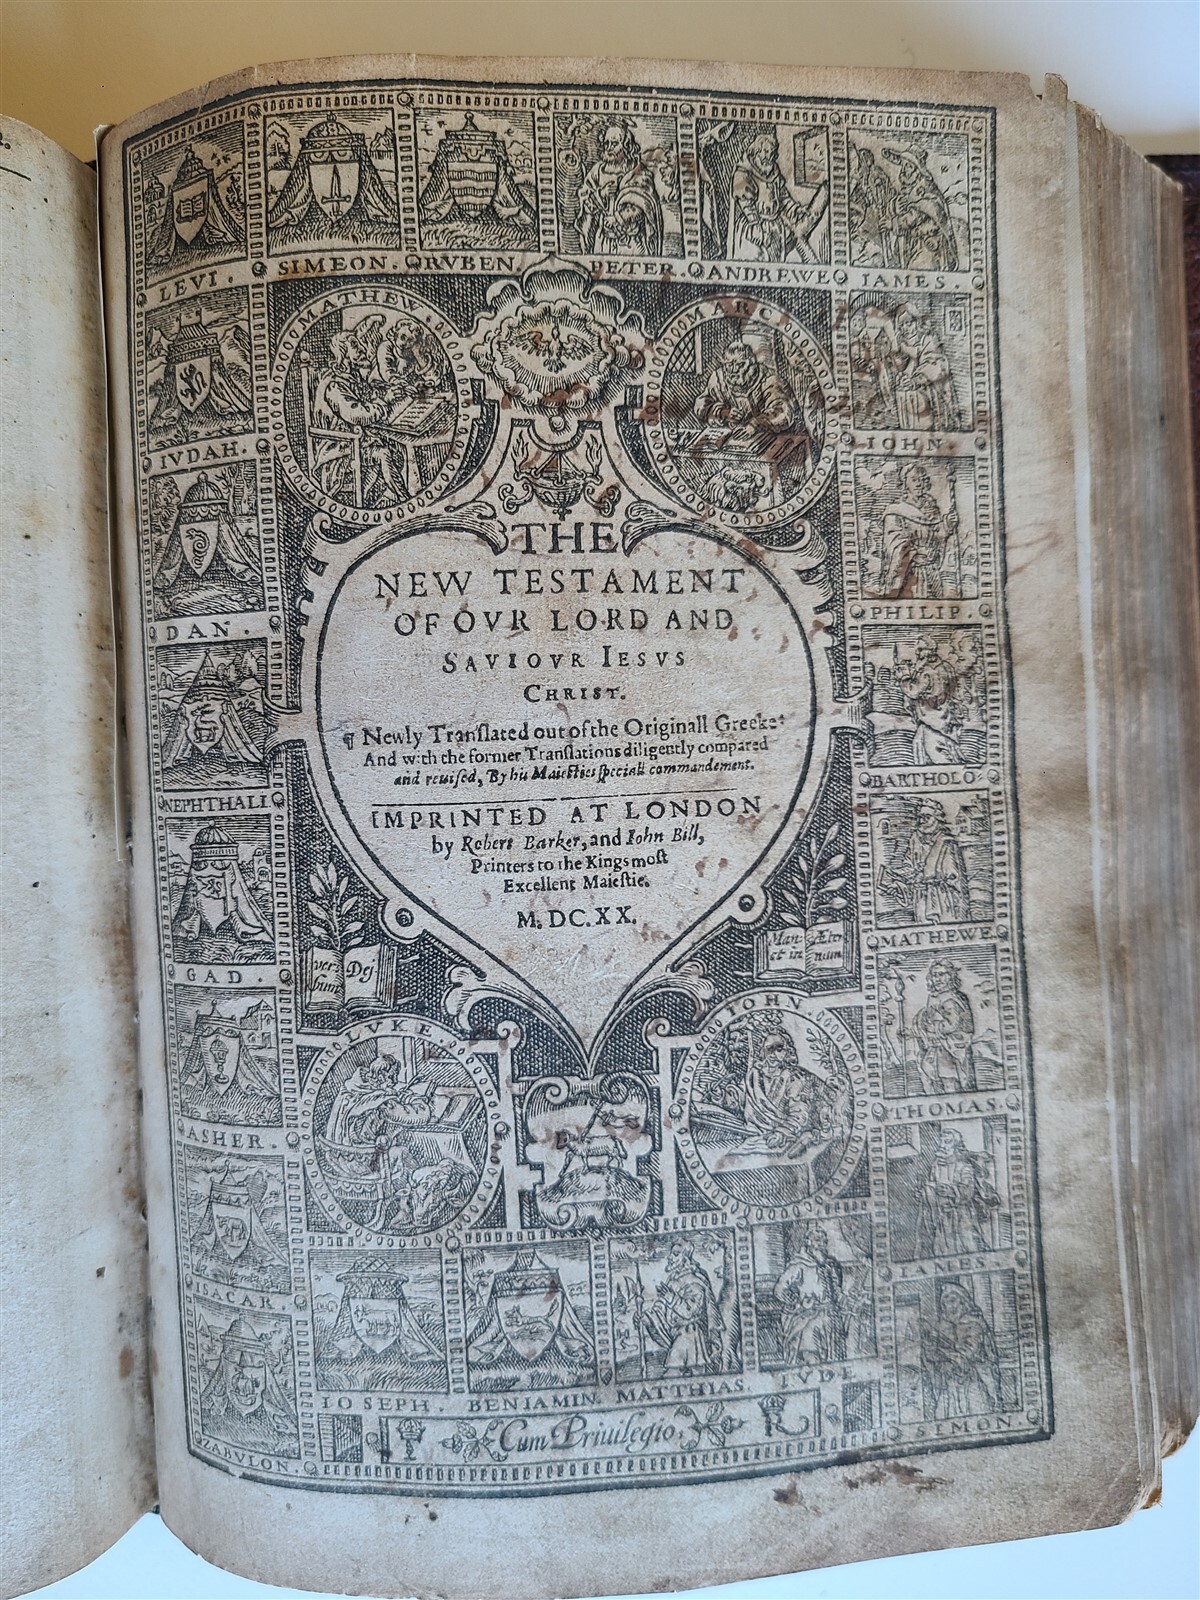 LEVI. SIMEON. RVBEN. PETER. ANDREWE IAMES.
MATHEW. MARC
IVDAH. IOHN.
DAN. PHILIP.
NEPHTHALI BARTHOLO
GAD. MATHEWE
ASHER. THOMAS.
ISACAR. IAMES.
ZABVLON. SIMON.
THE
NEW TESTAMENT
OF OVR LORD AND
SAVIOVR IESVS
CHRIST.
¶ Newly Tranſlated out of the Originall Greeke:
And with the former Tranſlations diligently compared
and reuiſed, By his Maieſties ſpeciall commandement.
IMPRINTED AT LONDON
by Robert Barker, and Iohn Bill,
Printers to the Kings moſt
Excellent Maieſtie.
M. DC. XX.
ver
bum
Dej
Man
et in
Æter
num
LVKE. IOHN
IOSEPH. BENIAMIN. MATTHIAS. IVDE
Cum Priuilegio.
R